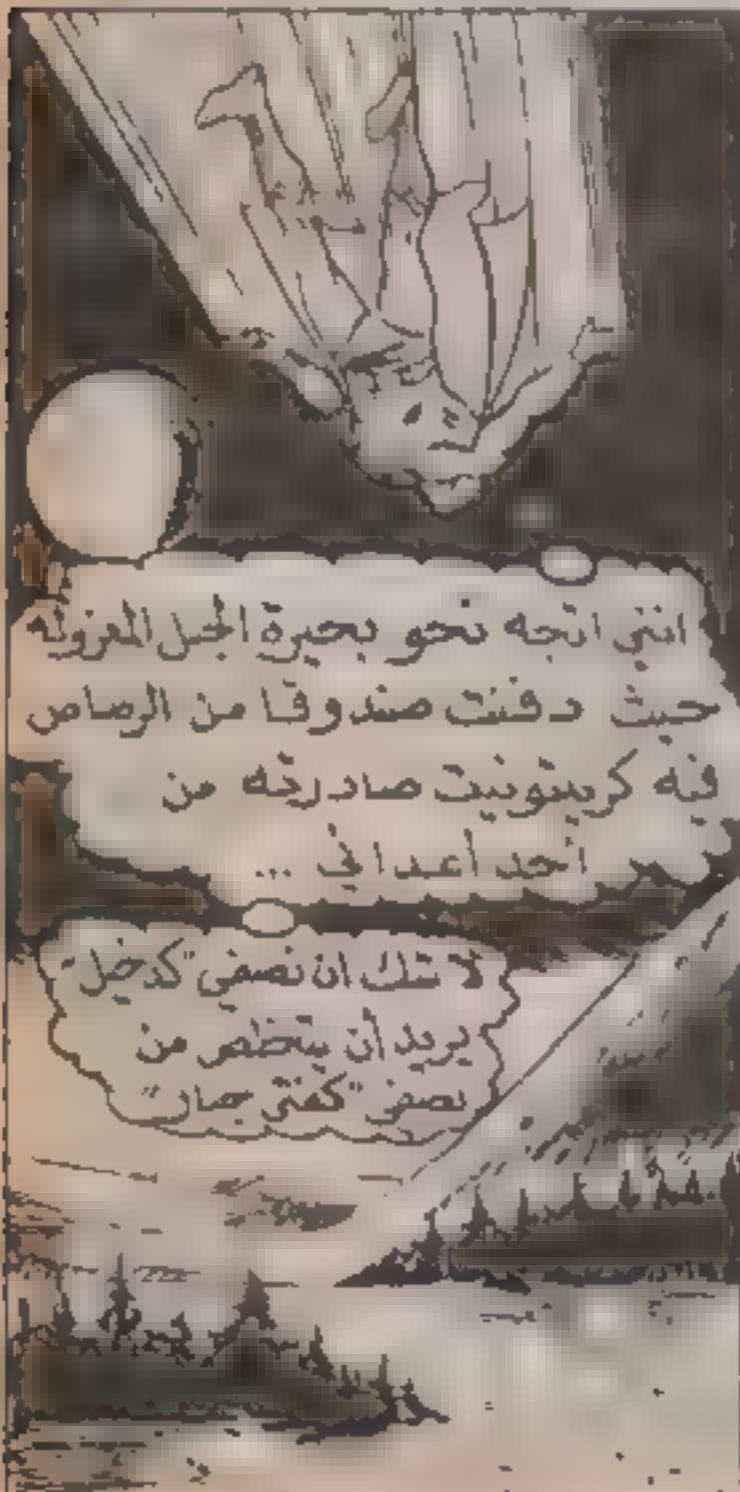 انني اتجه نحو بحيرة الجبل المعزوله
حيث دفنت صندوقا من الرصاص
فيه كريبتونيت صادرته من
احد أعدائي ...
لا شك ان نصفي "كدخيل"
يريد أن يتخلص من
نصفي "كفتى جبار"